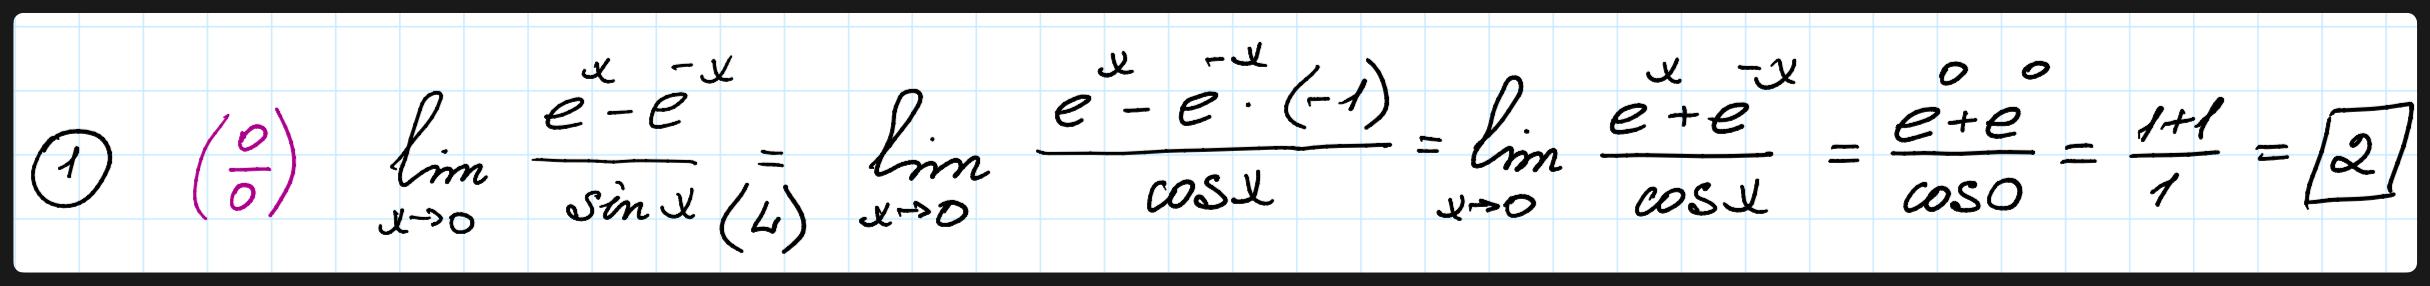 ① (0/0) lim_{x→0} (e^x - e^{-x})/(sin x) =_{(L)} lim_{x→0} (e^x - e^{-x} · (-1))/(cos x) = lim_{x→0} (e^x + e^{-x})/(cos x) = (e^0 + e^0)/(cos 0) = (1+1)/1 = 2